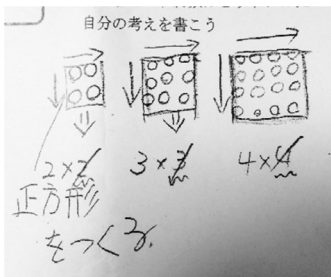 自分の考えを書こう
2×2 3×3 4×4
正方形
をつくる。